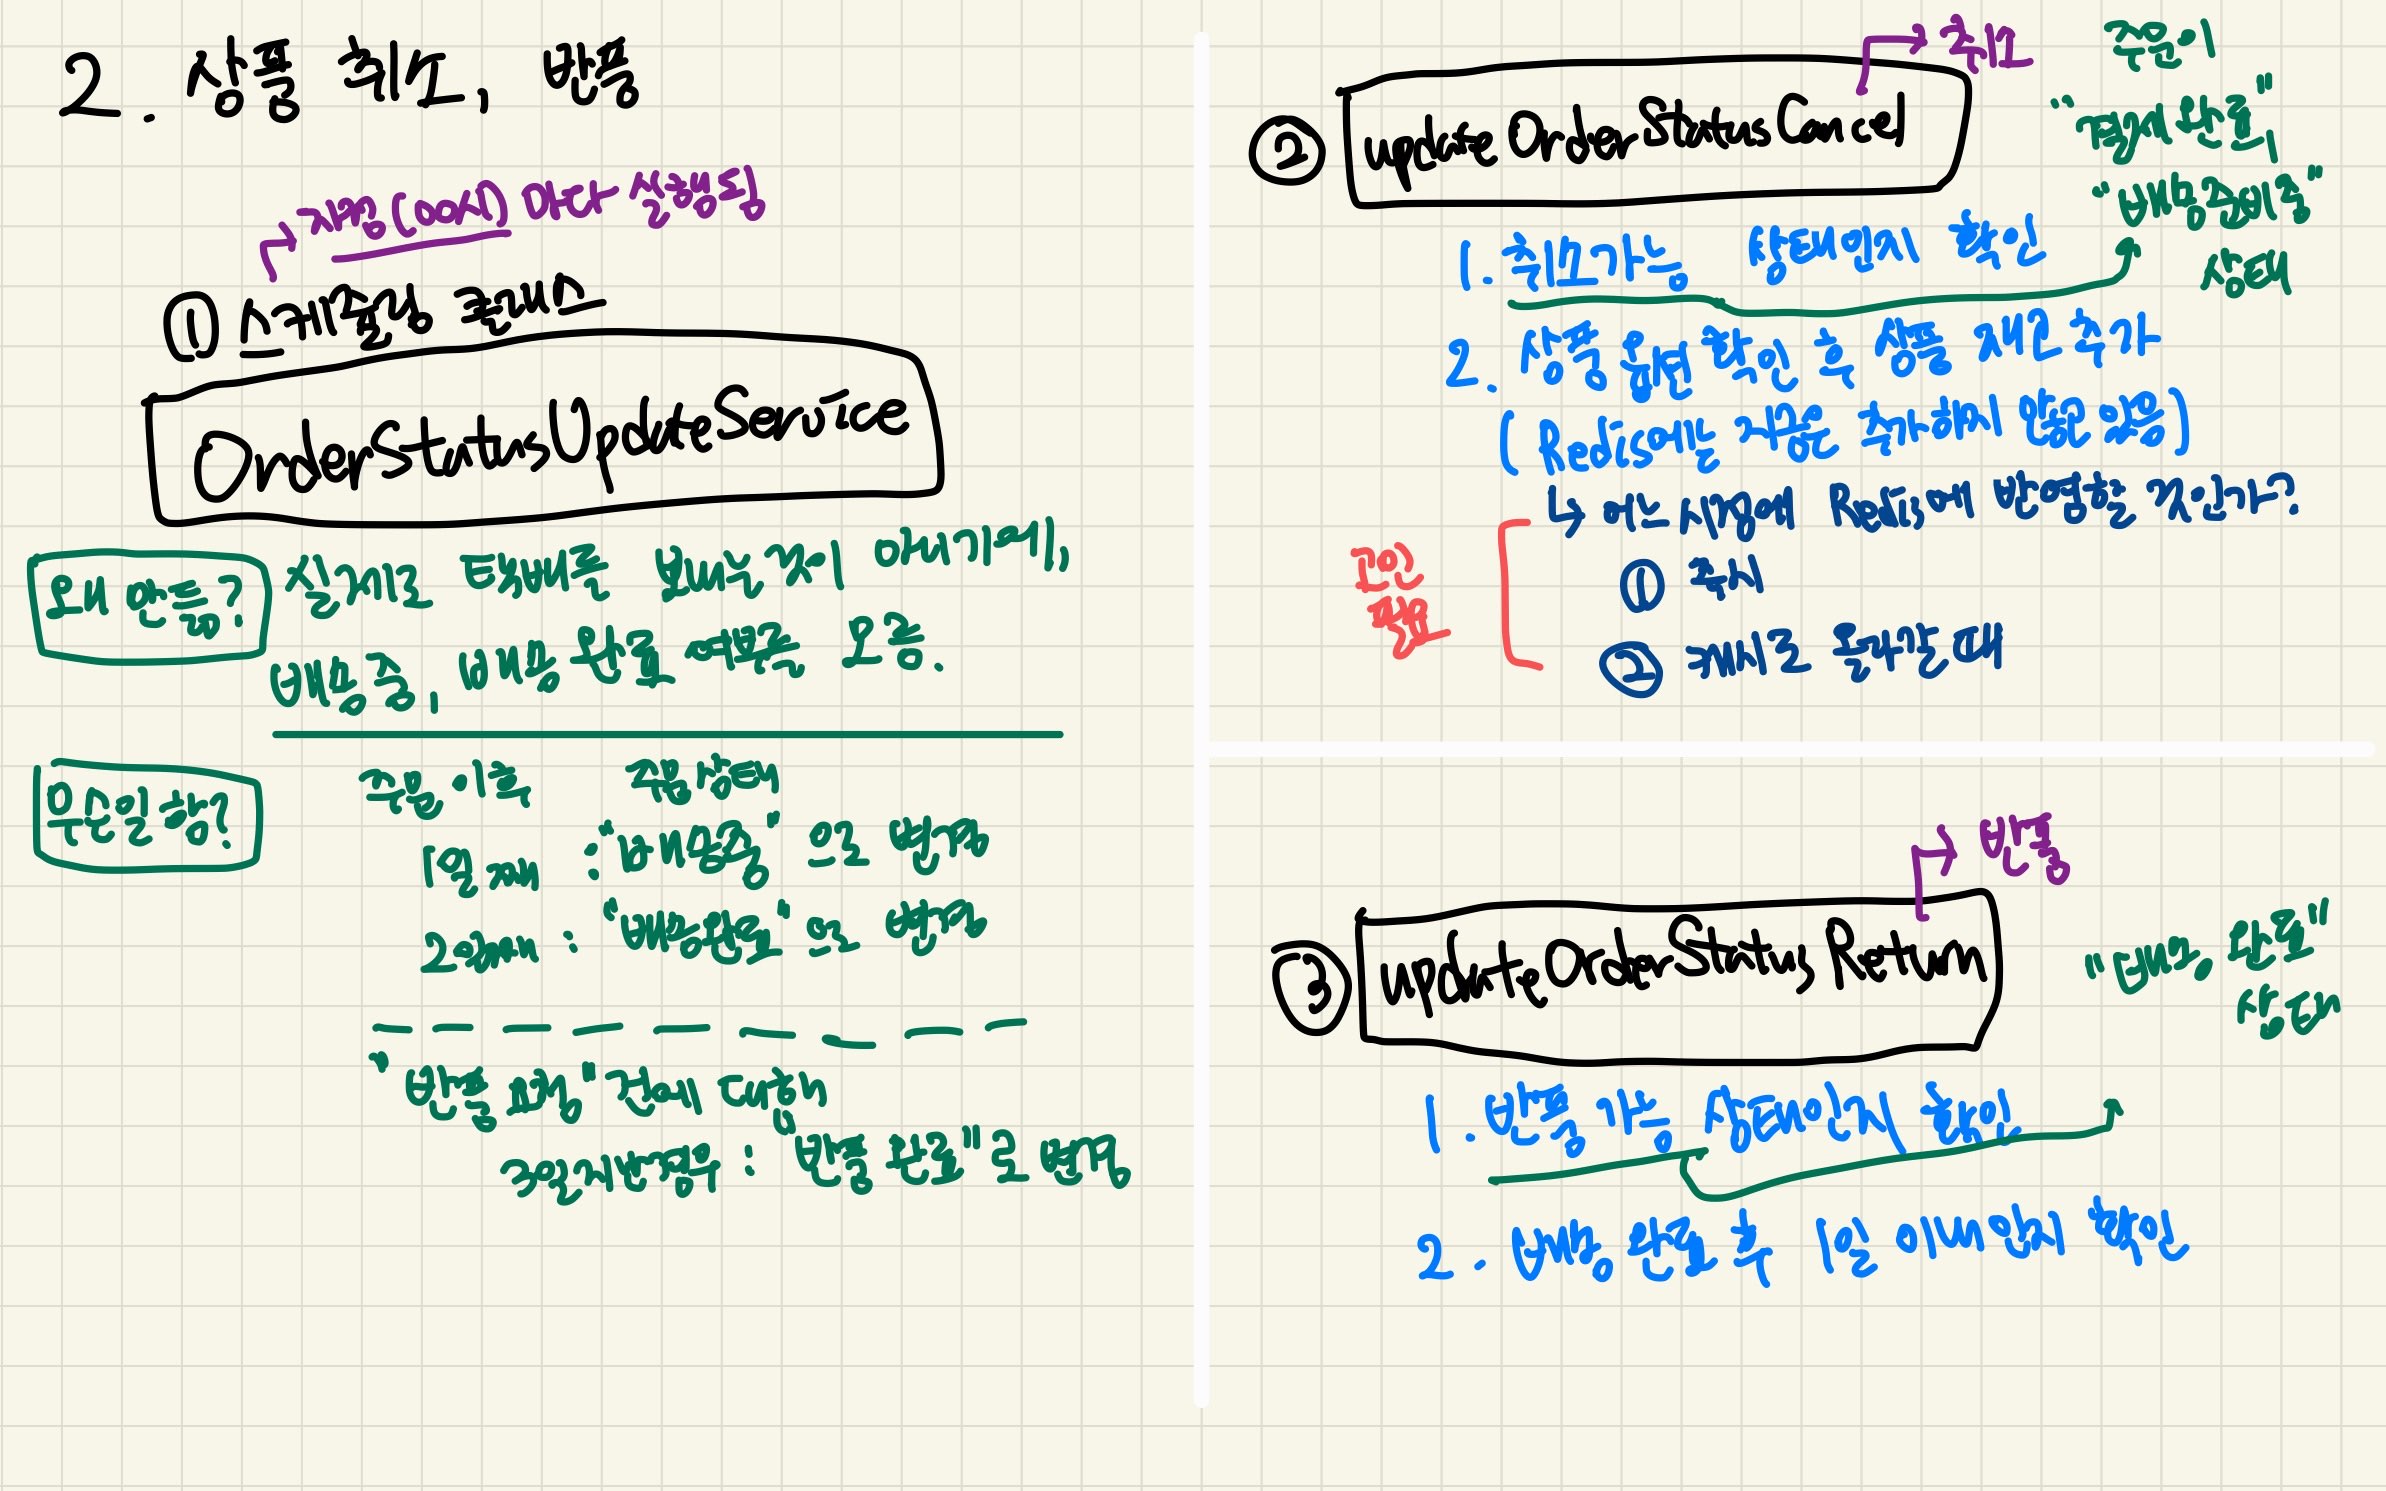 2. 상품 취소, 반품
자정(00시) 마다 실행됨
① 스케줄링 클래스
OrderStatusUpdateService
왜 만듦?
실제로 택배를 보내는 것이 아니기에,
배송 중, 배송 완료 여부를 모름.
무슨일 함?
주문 이후 주문상태
1일째 : "배송중" 으로 변경
2일째 : "배송완료" 으로 변경
"반품 요청" 건에 대해
3일차 반품유무 : "반품 완료"로 변경
취소
② updateOrderStatusCancel
주문이
"결제 완료",
"배송 준비중"
상태
1. 취소가능 상태인지 확인
2. 상품 옵션 확인 후 상품 재고 추가
(Redis에는 지금은 추가하지 않고 있음)
↳ 어느 시점에 Redis에 반영할 것인가?
고민
필요
① 즉시
② 캐시로 올라갈 때
반품
③ updateOrderStatusReturn
"배송 완료"
상태
1. 반품 가능 상태인지 확인
2. 배송 완료 후 1일 이내인지 확인